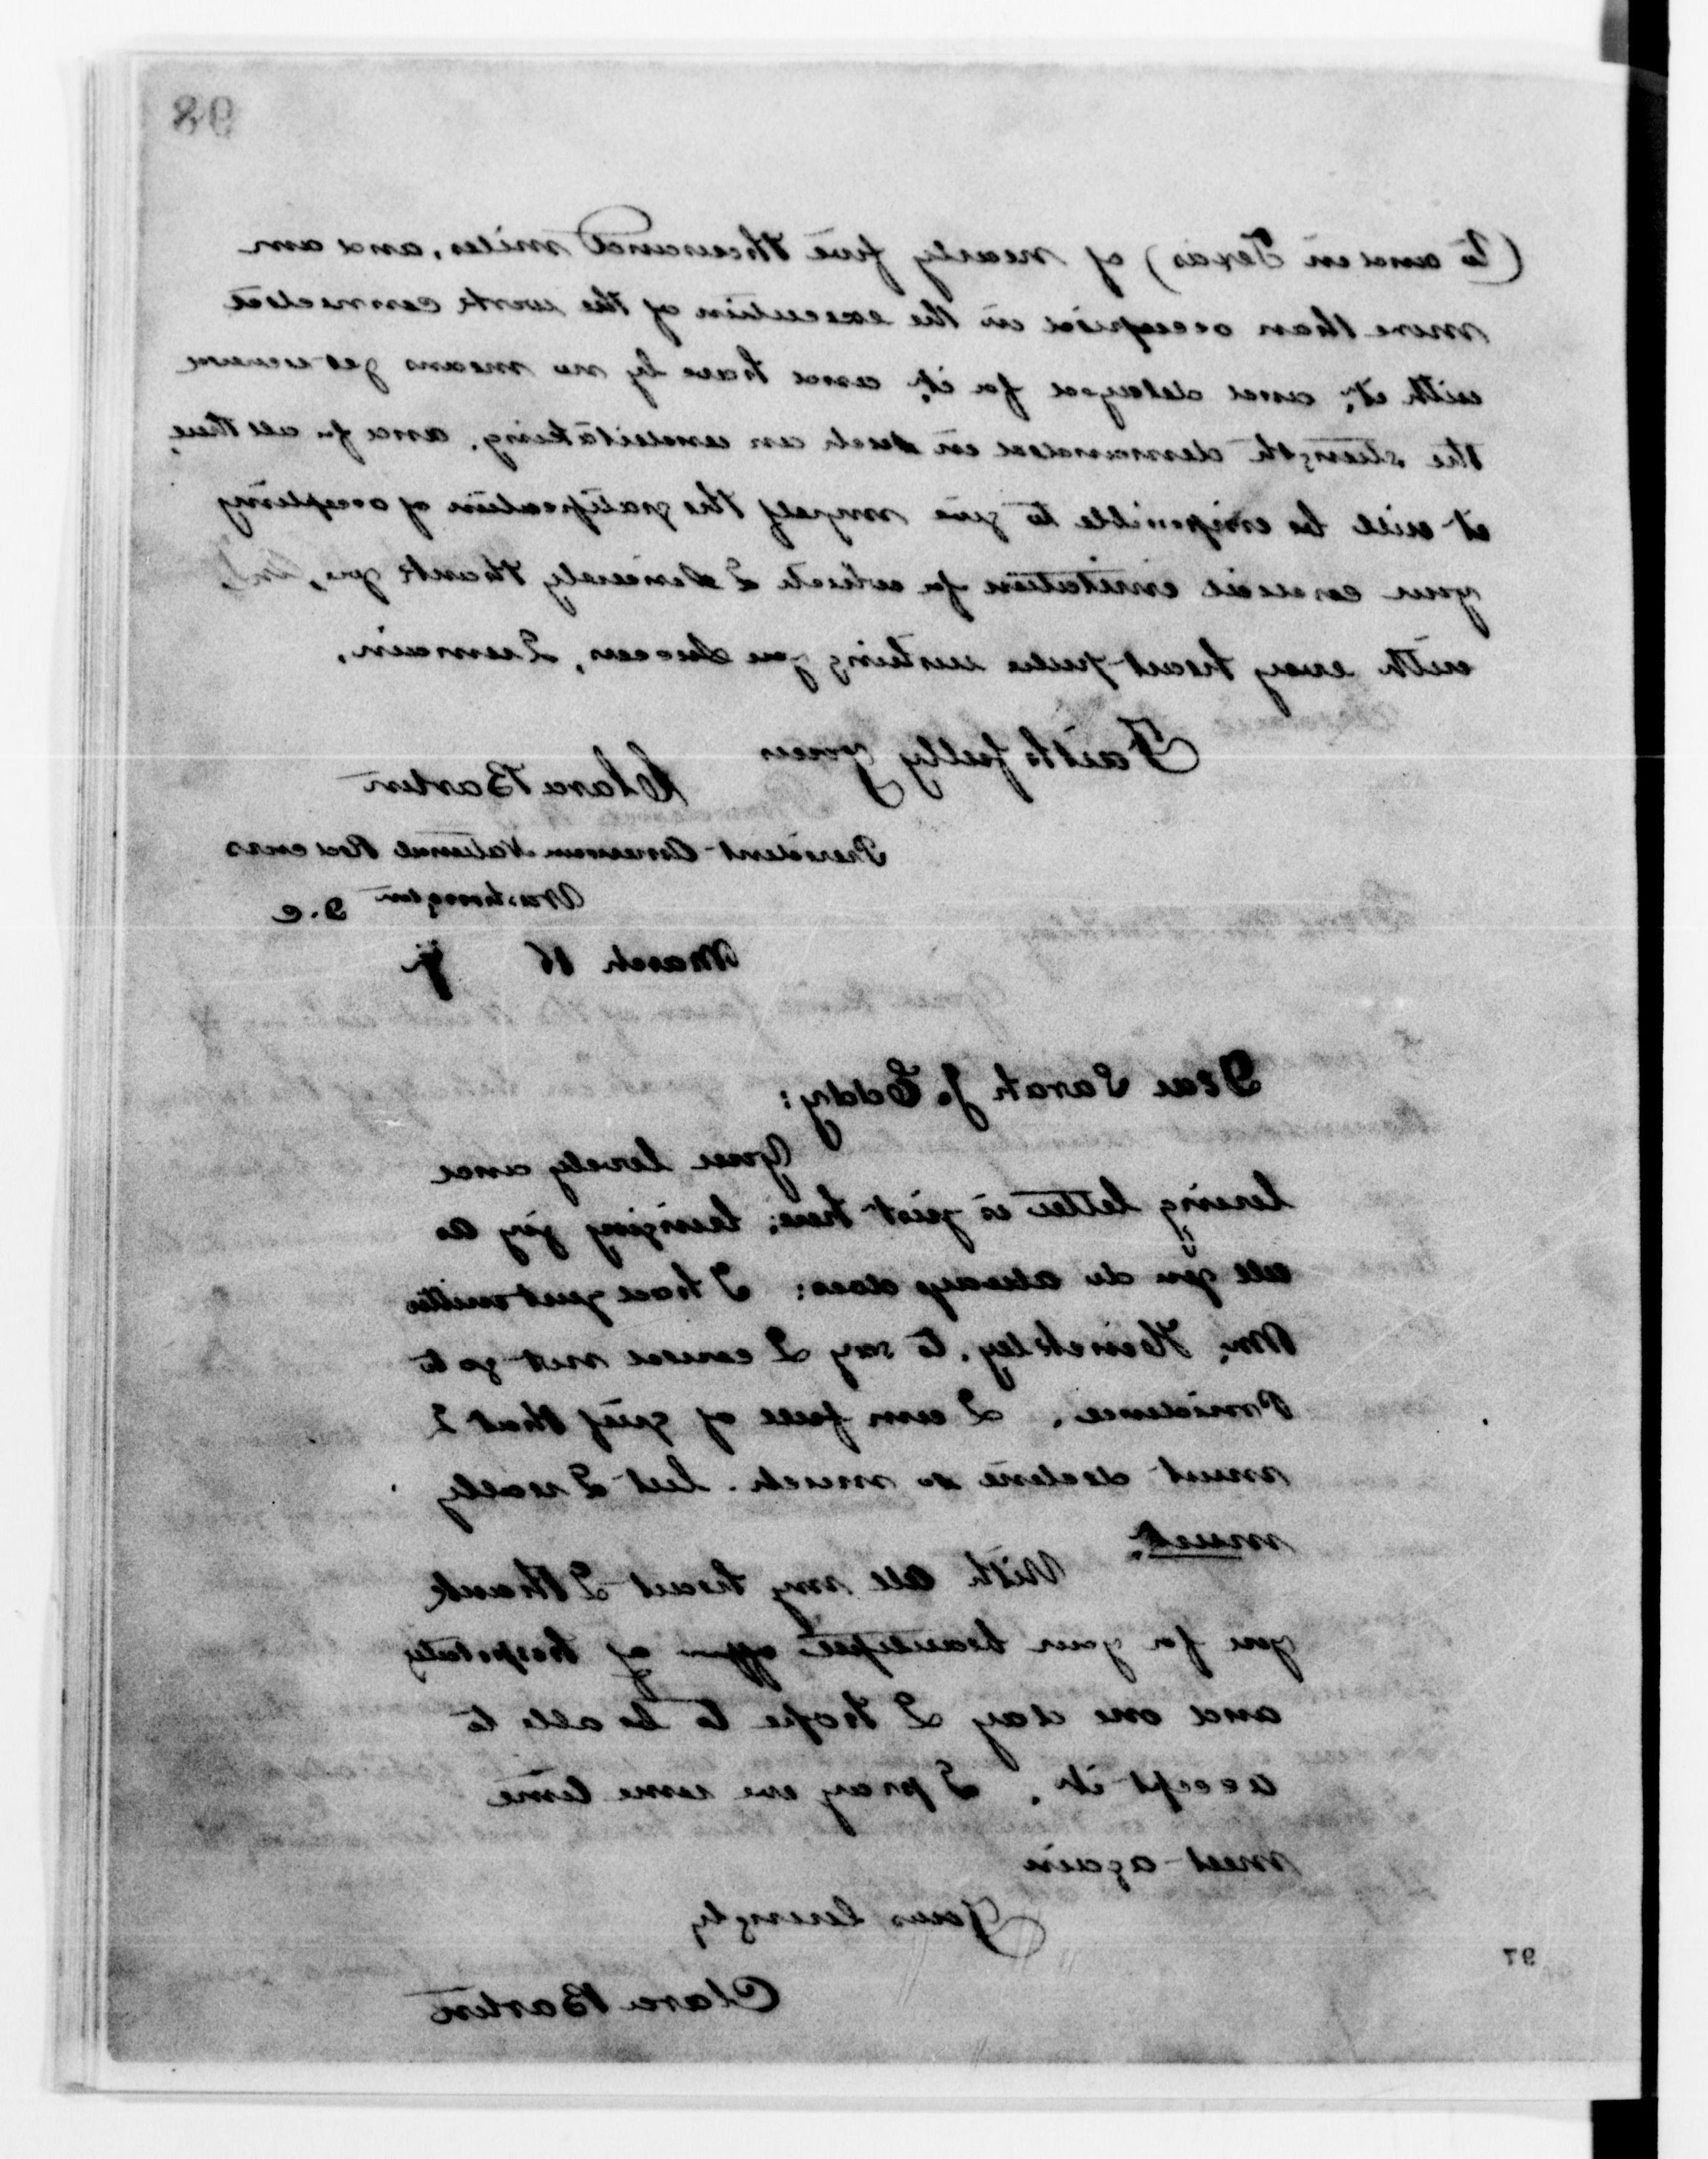 98
(to and in Texas) of nearly five thousand miles, and am
more than occupied in the execution of the work connected
with it, and delayed for it, and have by no means yet
the strength demanded in such an undertaking, and for all this,
it will be impossible to give myself the gratification of accepting
your cordial invitation for which I sincerely thank you, and
with every heart-felt wishing you success, I remain,
Faithfully yours
Clara Barton
President American National Red Cross
Washington D.C.
March 16
Dear Sarah J. Eddy:
Your lovely and
loving letter is just here, bringing joy as
all you do always does: I have just written
Mr. Hinckley, to say I could not go to
Providence. I am full of grief that I
must decline so much. but I really
must.
With all my heart I thank
you for your beautiful offer of hospitality
and one day I hope to be able to
accept it. I pray we some time
meet again
Yours lovingly
Clara Barton
97